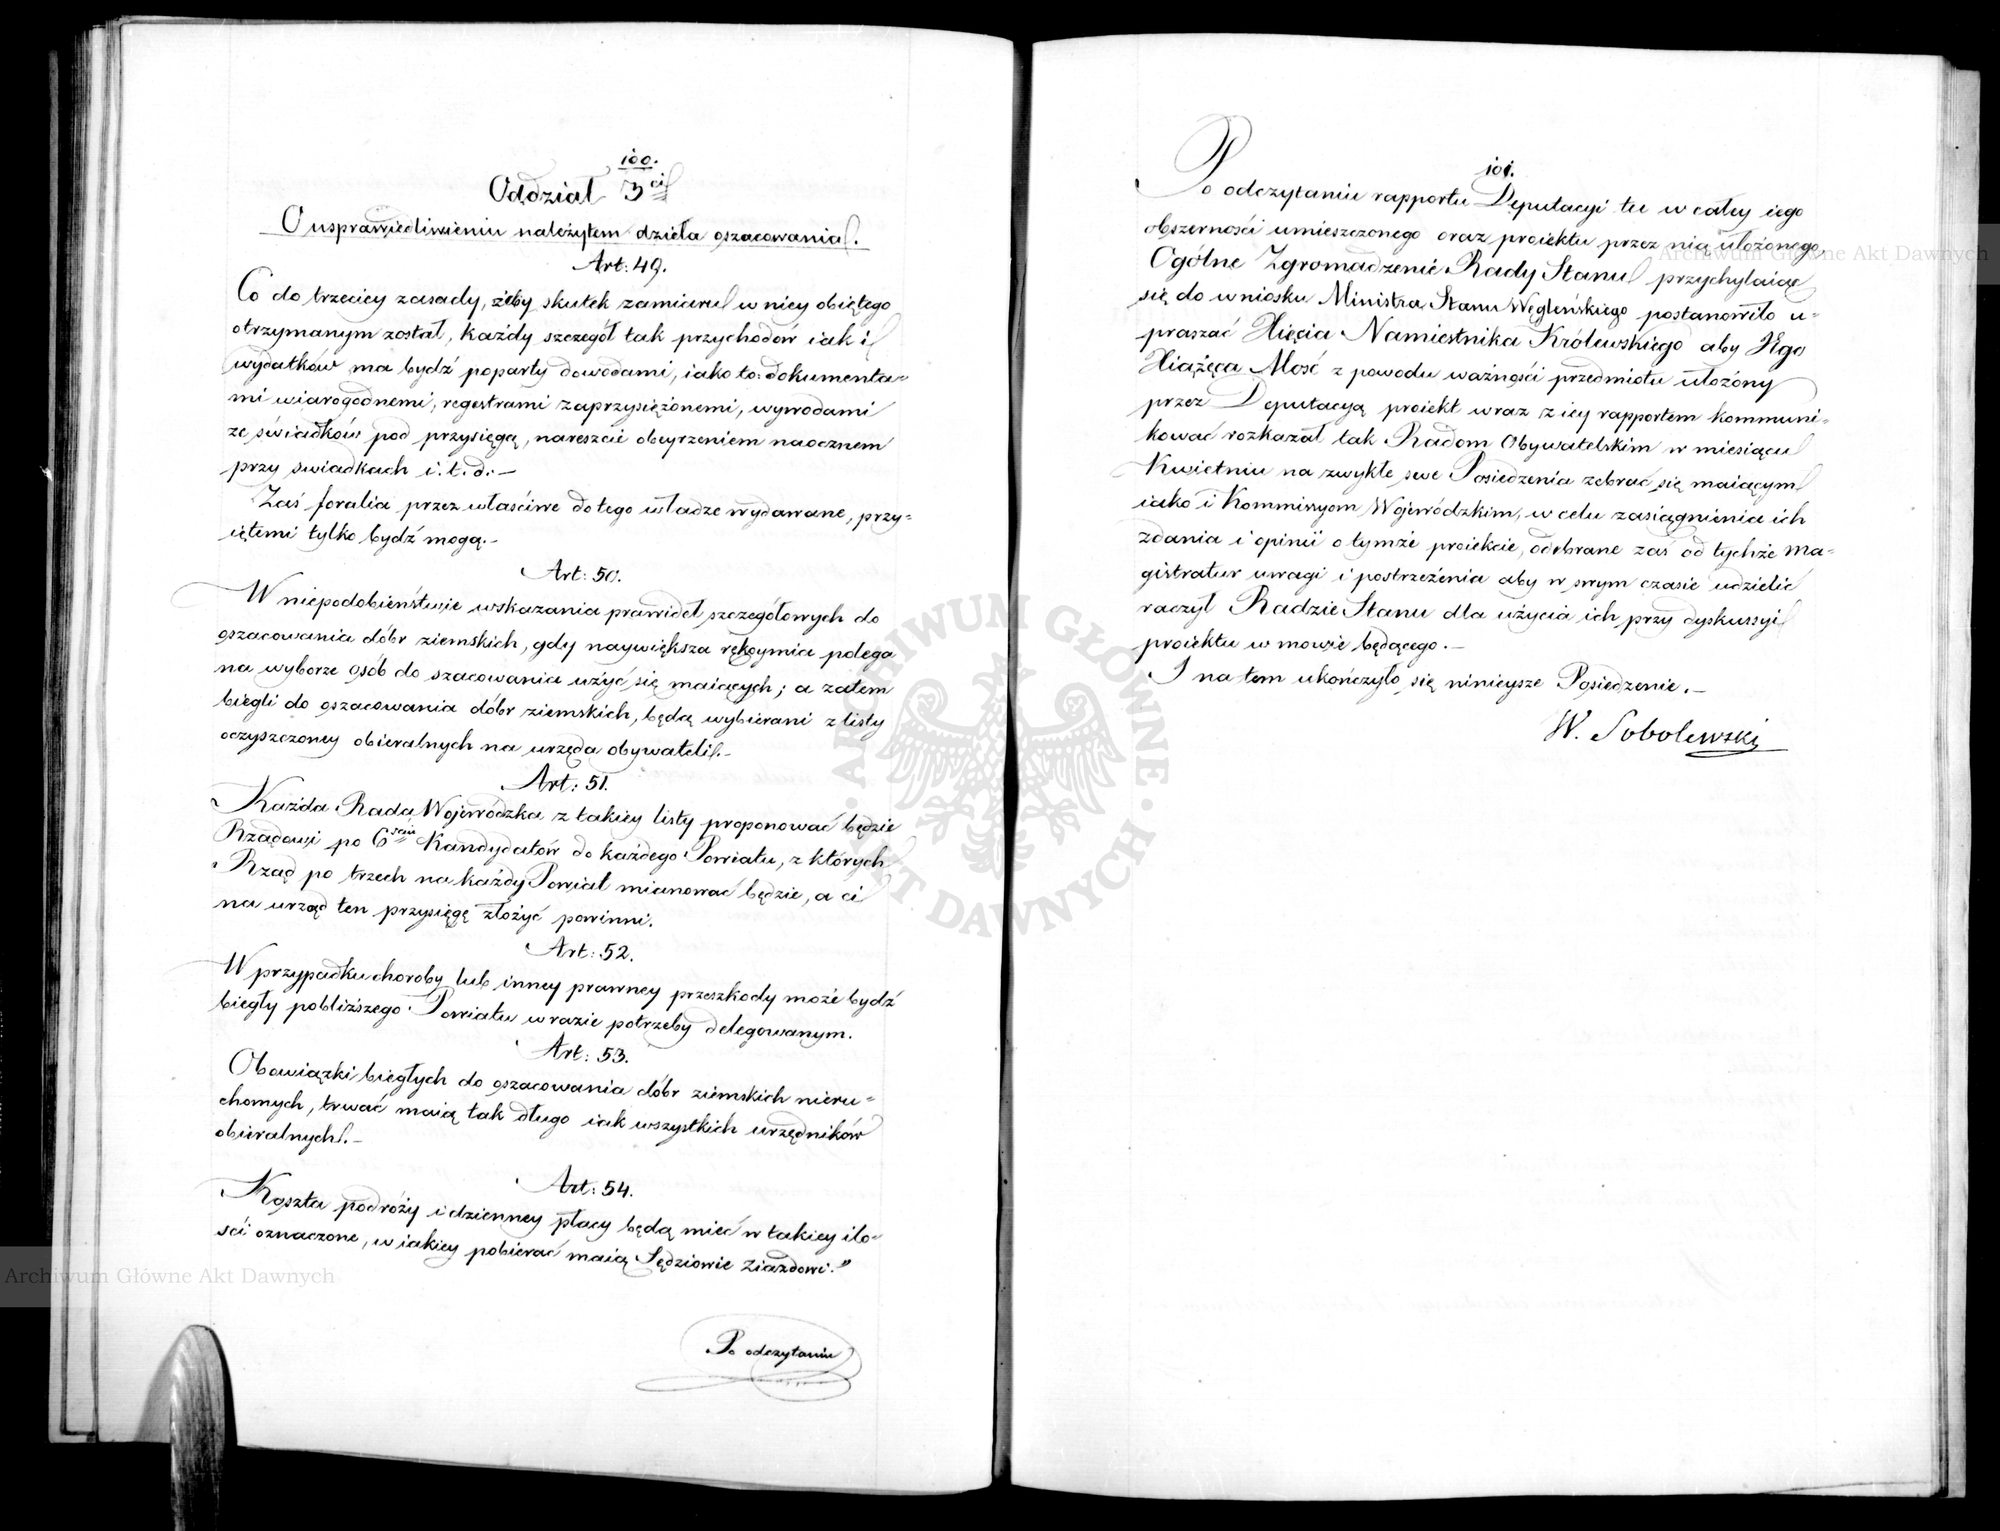 100.
Oddział 3ci
O usprawiedliwieniu należytem dzieła oszacowania.
Art: 49.
Co do trzeciey zasady, żeby skutek zamiaru w niey obiętego
otrzymanym został, każdy szczegół tak przychodów iak i
wydatków ma bydź poparty dowodami, iako to: dokumenta=
mi wiarogodnemi, regestrami zaprzysiężonemi, wywodami
ze świadków pod przysięgą, nareszcie obeyrzeniem naocznem
przy swiadkach i. t. d.—
Zaś foralia przez właściwe do tego władze wydawane, przy=
iętemi tylko bydź mogą.—
Art: 50.
W niepodobieństwie wskazania prawideł szczegółowych do
oszacowania dóbr ziemskich, gdy naywiększa rękoymia polega
na wyborze osób do szacowania użyć się maiących; a zatem
biegli do oszacowania dóbr ziemskich, będą wybierani z listy
oczyszczoney obieralnych na urzęda obywateli.—
Art: 51.
Każda Rada Wojewódzka z takiey listy proponować będzie
Rządowi po 6ściu Kandydatów do każdego Powiatu, z których
Rząd po trzech na każdy Powiat mianować będzie, a ci
na urząd ten przysięgę złożyć powinni.
Art: 52.
W przypadku choroby lub inney prawney przeszkody może bydź
biegły pobliższego Powiatu w razie potrzeby delegowanym.
Art: 53.
Obowiązki biegłych do oszacowania dóbr ziemskich nieru=
chomych, trwać maią tak długo iak wszystkich urzędników
obieralnych.—
Art: 54.
Koszta podróży i dzienney płacy będą mieć w takiey ilo=
ści oznaczone, w iakiey pobierać maią Sędziowie Ziazdowi."
Po odczytaniu
101.
Po odczytaniu rapportu Deputacyi tu w całey iego
obszerności umieszczonego oraz proiektu przez nią ułożonego,
Ogólne Zgromadzenie Rady Stanu przychylaiąc
się do wniosku Ministra Stanu Węgleńskiego postanowiło u=
praszać Xięcia Namiestnika Królewskiego aby Jego
Xiążęca Mość z powodu ważności przedmiotu ułożony
przez Deputacyą proiekt wraz z iey rapportem kommuni=
kować rozkazał tak Radom Obywatelskim w miesiącu
Kwietniu na zwykłe swe Posiedzenia zebrać się maiącym
iako i Kommissyom Wojewódzkim, w celu zasiągnienia ich
zdania i opinii o tymże proiekcie, odebrane zaś od tychże ma=
gistratur uwagi i postrzeżenia aby w swym czasie udzielić
raczył Radzie Stanu dla użycia ich przy dyskussyi
proiektu w mowie będącego.—
I na tem ukończyło się ninieysze Posiedzenie.—
W. Sobolewski
Archiwum Główne Akt Dawnych
Archiwum Główne Akt Dawnych
ARCHIWUM GŁÓWNE AKT DAWNYCH